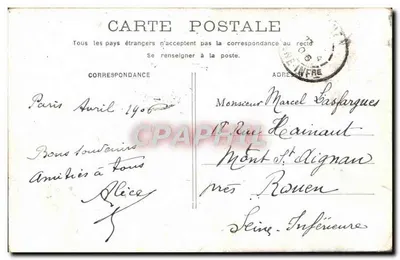 CARTE POSTALE
Tous les pays étrangers n'acceptent pas la correspondance au recto
Se renseigner à la poste.
CORRESPONDANCE
ADRES
RE INFRE
Paris Avril 1906
Bons souvenirs
Amitiés à tous
Alice
Monsieur Marcel Lasfargues
Rue Hainaut
Mont St Aignan
près Rouen
Seine-Inférieure
CARTEPOSTALE